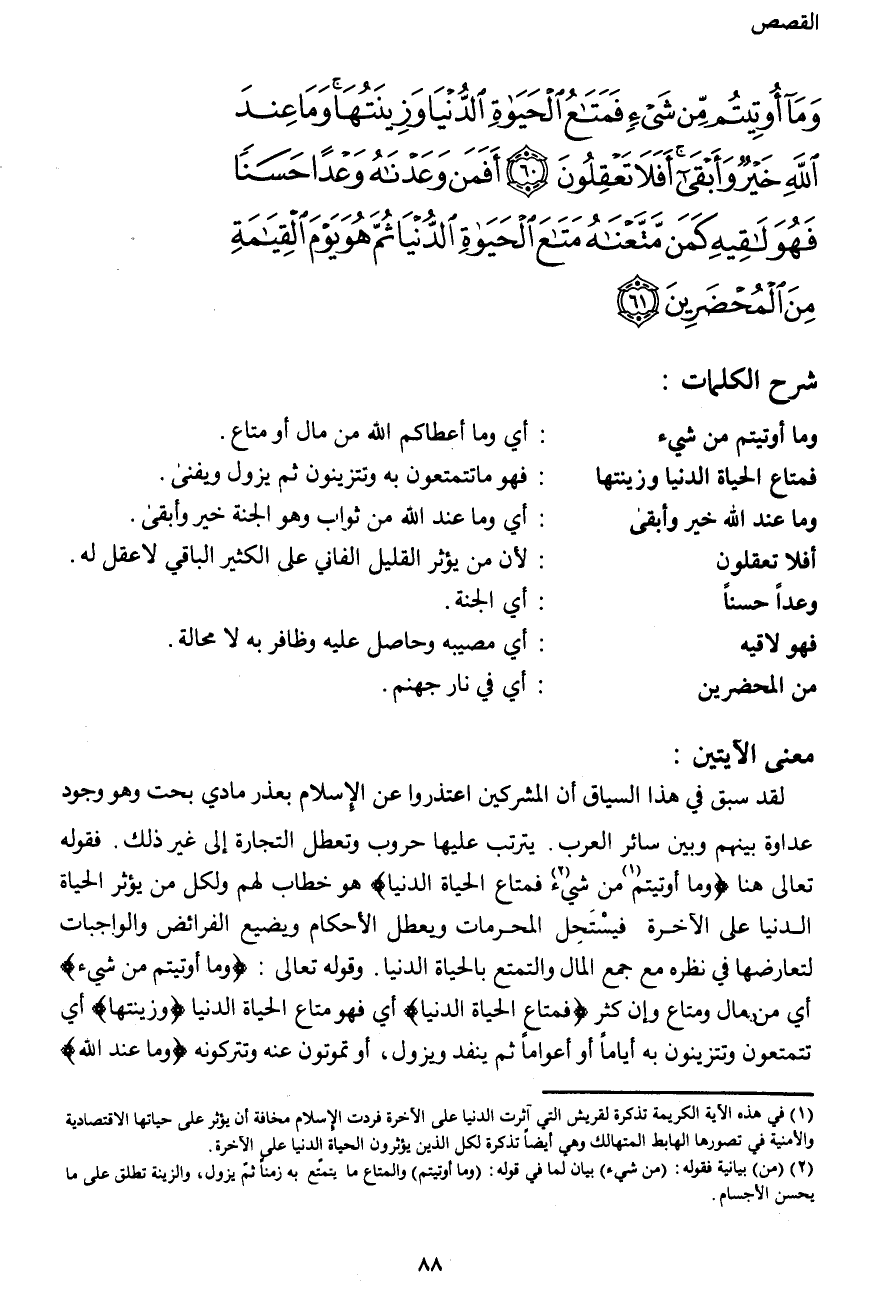 القصص
وَمَآ أُوتِيتُم مِّن شَىْءٍ فَمَتَـٰعُ ٱلْحَيَوٰةِ ٱلدُّنْيَا وَزِينَتُهَا ۚ وَمَا عِندَ
ٱللَّهِ خَيْرٌ وَأَبْقَىٰٓ ۚ أَفَلَا تَعْقِلُونَ ٦٠ أَفَمَن وَعَدْنَـٰهُ وَعْدًا حَسَنًا
فَهُوَ لَـٰقِيهِ كَمَن مَّتَّعْنَـٰهُ مَتَـٰعَ ٱلْحَيَوٰةِ ٱلدُّنْيَا ثُمَّ هُوَ يَوْمَ ٱلْقِيَـٰمَةِ
مِنَ ٱلْمُحْضَرِينَ ٦١
شرح الكلمات :
وما أوتيتم من شيء : أي وما أعطاكم الله من مال أو متاع .
فمتاع الحياة الدنيا وزينتها : فهو ماتتمتعون به وتتزينون ثم يزول ويفنىٰ .
وما عند الله خير وأبقىٰ : أي وما عند الله من ثواب وهو الجنة خير وأبقىٰ .
أفلا تعقلون : لأن من يؤثر القليل الفاني على الكثير الباقي لاعقل له .
وعداً حسناً : أي الجنة .
فهو لاقيه : أي مصيبه وحاصل عليه وظافر به لا محالة .
من المحضرين : أي في نار جهنم .
معنى الآيتين :
لقد سبق في هذا السياق أن المشركين اعتذروا عن الإسلام بعذر مادي بحت وهو وجود
عداوة بينهم وبين سائر العرب . يترتب عليها حروب وتعطل التجارة إلى غير ذلك . فقوله
تعالى هنا ﴿وما أوتيتم(١) من شيء(٢) فمتاع الحياة الدنيا﴾ هو خطاب لهم ولكل من يؤثر الحياة
الدنيا على الآخرة فيسْتَحِل المحرمات ويعطل الأحكام ويضيع الفرائض والواجبات
لتعارضها في نظره مع جمع المال والتمتع بالحياة الدنيا . وقوله تعالى : ﴿وما أوتيتم من شيء﴾
أي من مال ومتاع وإن كثر ﴿فمتاع الحياة الدنيا﴾ أي فهو متاع الحياة الدنيا ﴿وزينتها﴾ أي
تتمتعون وتتزينون به أياماً أو أعواماً ثم ينفد ويزول ، أو تموتون عنه وتتركونه ﴿وما عند الله﴾
(١) في هذه الآية الكريمة تذكرة لقريش التي آثرت الدنيا على الآخرة فردت الإسلام مخافة أن يؤثر على حياتها الاقتصادية
والأمنية في تصورها الهابط المتهالك وهي أيضاً تذكرة لكل الذين يؤثرون الحياة الدنيا على الآخرة .
(٢) (من) بيانية فقوله : (من شيء) بيان لما في قوله : (وما أوتيتم) والمتاع ما يتمتّع به زمناً ثمّ يزول ، والزينة تطلق على ما
يحسن الأجسام .
٨٨